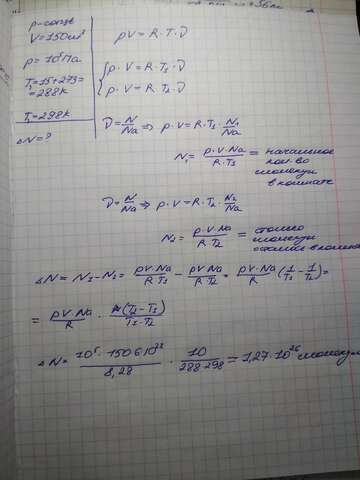 p-const
V=150м³
p = 10⁵Па
T₁=15+273=
=288K
T₂=298K
ΔN=?
pV = R·T·ν
p·V = R·T₁·ν
p·V = R·T₂·ν
ν = N/Na => p·V = R·T₁· N₁/Na
N₁ = p·V·Na / R·T₁ = начальное
кол-во
молекул
в комнате
ν = N/Na => p·V = R·T₂· N₂/Na
N₂ = p·V·Na / R·T₂ = столько
молекул
ΔN = N₁-N₂ = pV·Na / R·T₁ - pV·Na / R·T₂ = p·V·Na / R (1/T₁ - 1/T₂) =
= pV·Na / R · (T₂-T₁) / T₁·T₂
ΔN = 10⁵·150·6·10²³ / 8,28 · 10 / 288·298 = 1,27·10²⁶ молекул